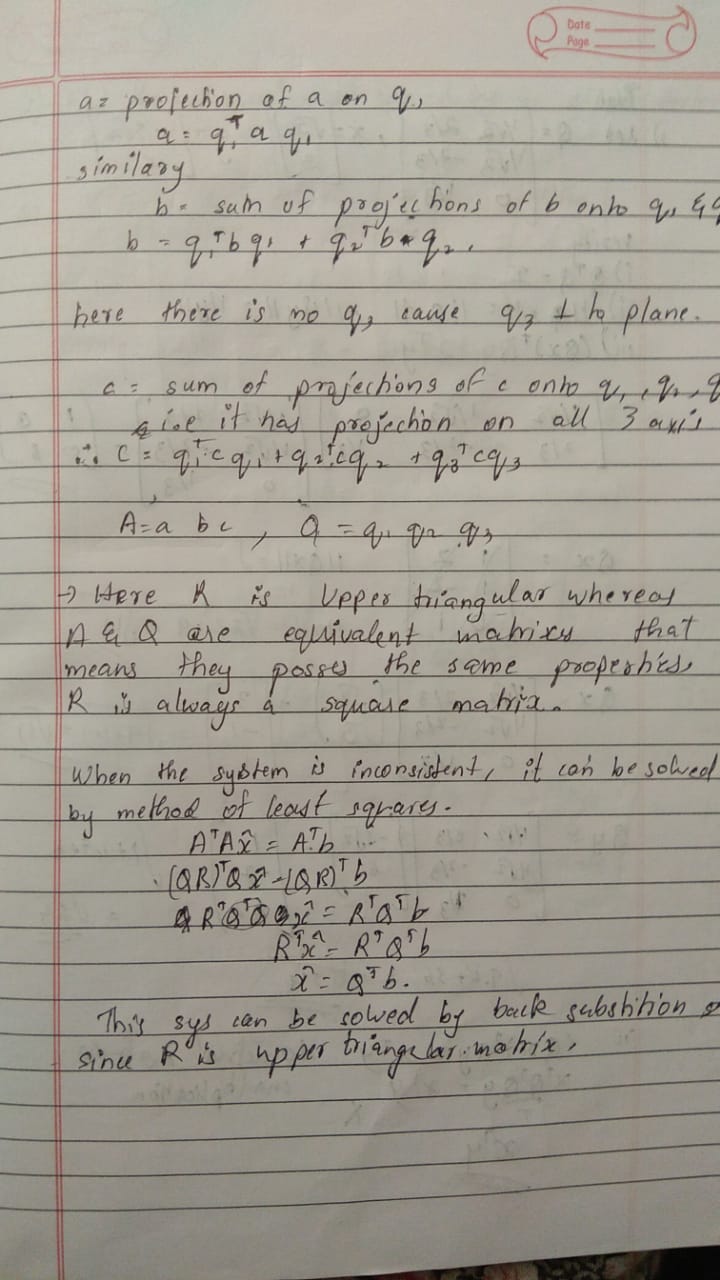 Date
Page
a = projection of a on q₁
a = q₁ᵀ a q₁
similary
b = sum of projections of b onto q₁ &
b = q₁ᵀb q₁ + q₂ᵀb q₂.
here there is no q₃ cause q₃ ⊥ to plane.
c = sum of projections of c onto q₁, q₂, q
i.e it has projection on all 3 axis
∴ C = q₁ᵀc q₁ + q₂ᵀc q₂ + q₃ᵀc q₃
A = a b c , Q = q₁ q₂ q₃
→ Here R is Upper triangular whereas
A & Q are equivalent matrixs that
means they posses the same properties,
R is always a square matrix.
When the system is inconsistent, it can be solved
by method of least squares.
AᵀAx̂ = Aᵀb
(QR)ᵀQ x̂ = (QR)ᵀb
RᵀQᵀQ x̂ = RᵀQᵀb
Rᵀx̂ = RᵀQᵀb
x̂ = Qᵀb.
This sys can be solved by back substition
since R is upper triangular matrix.